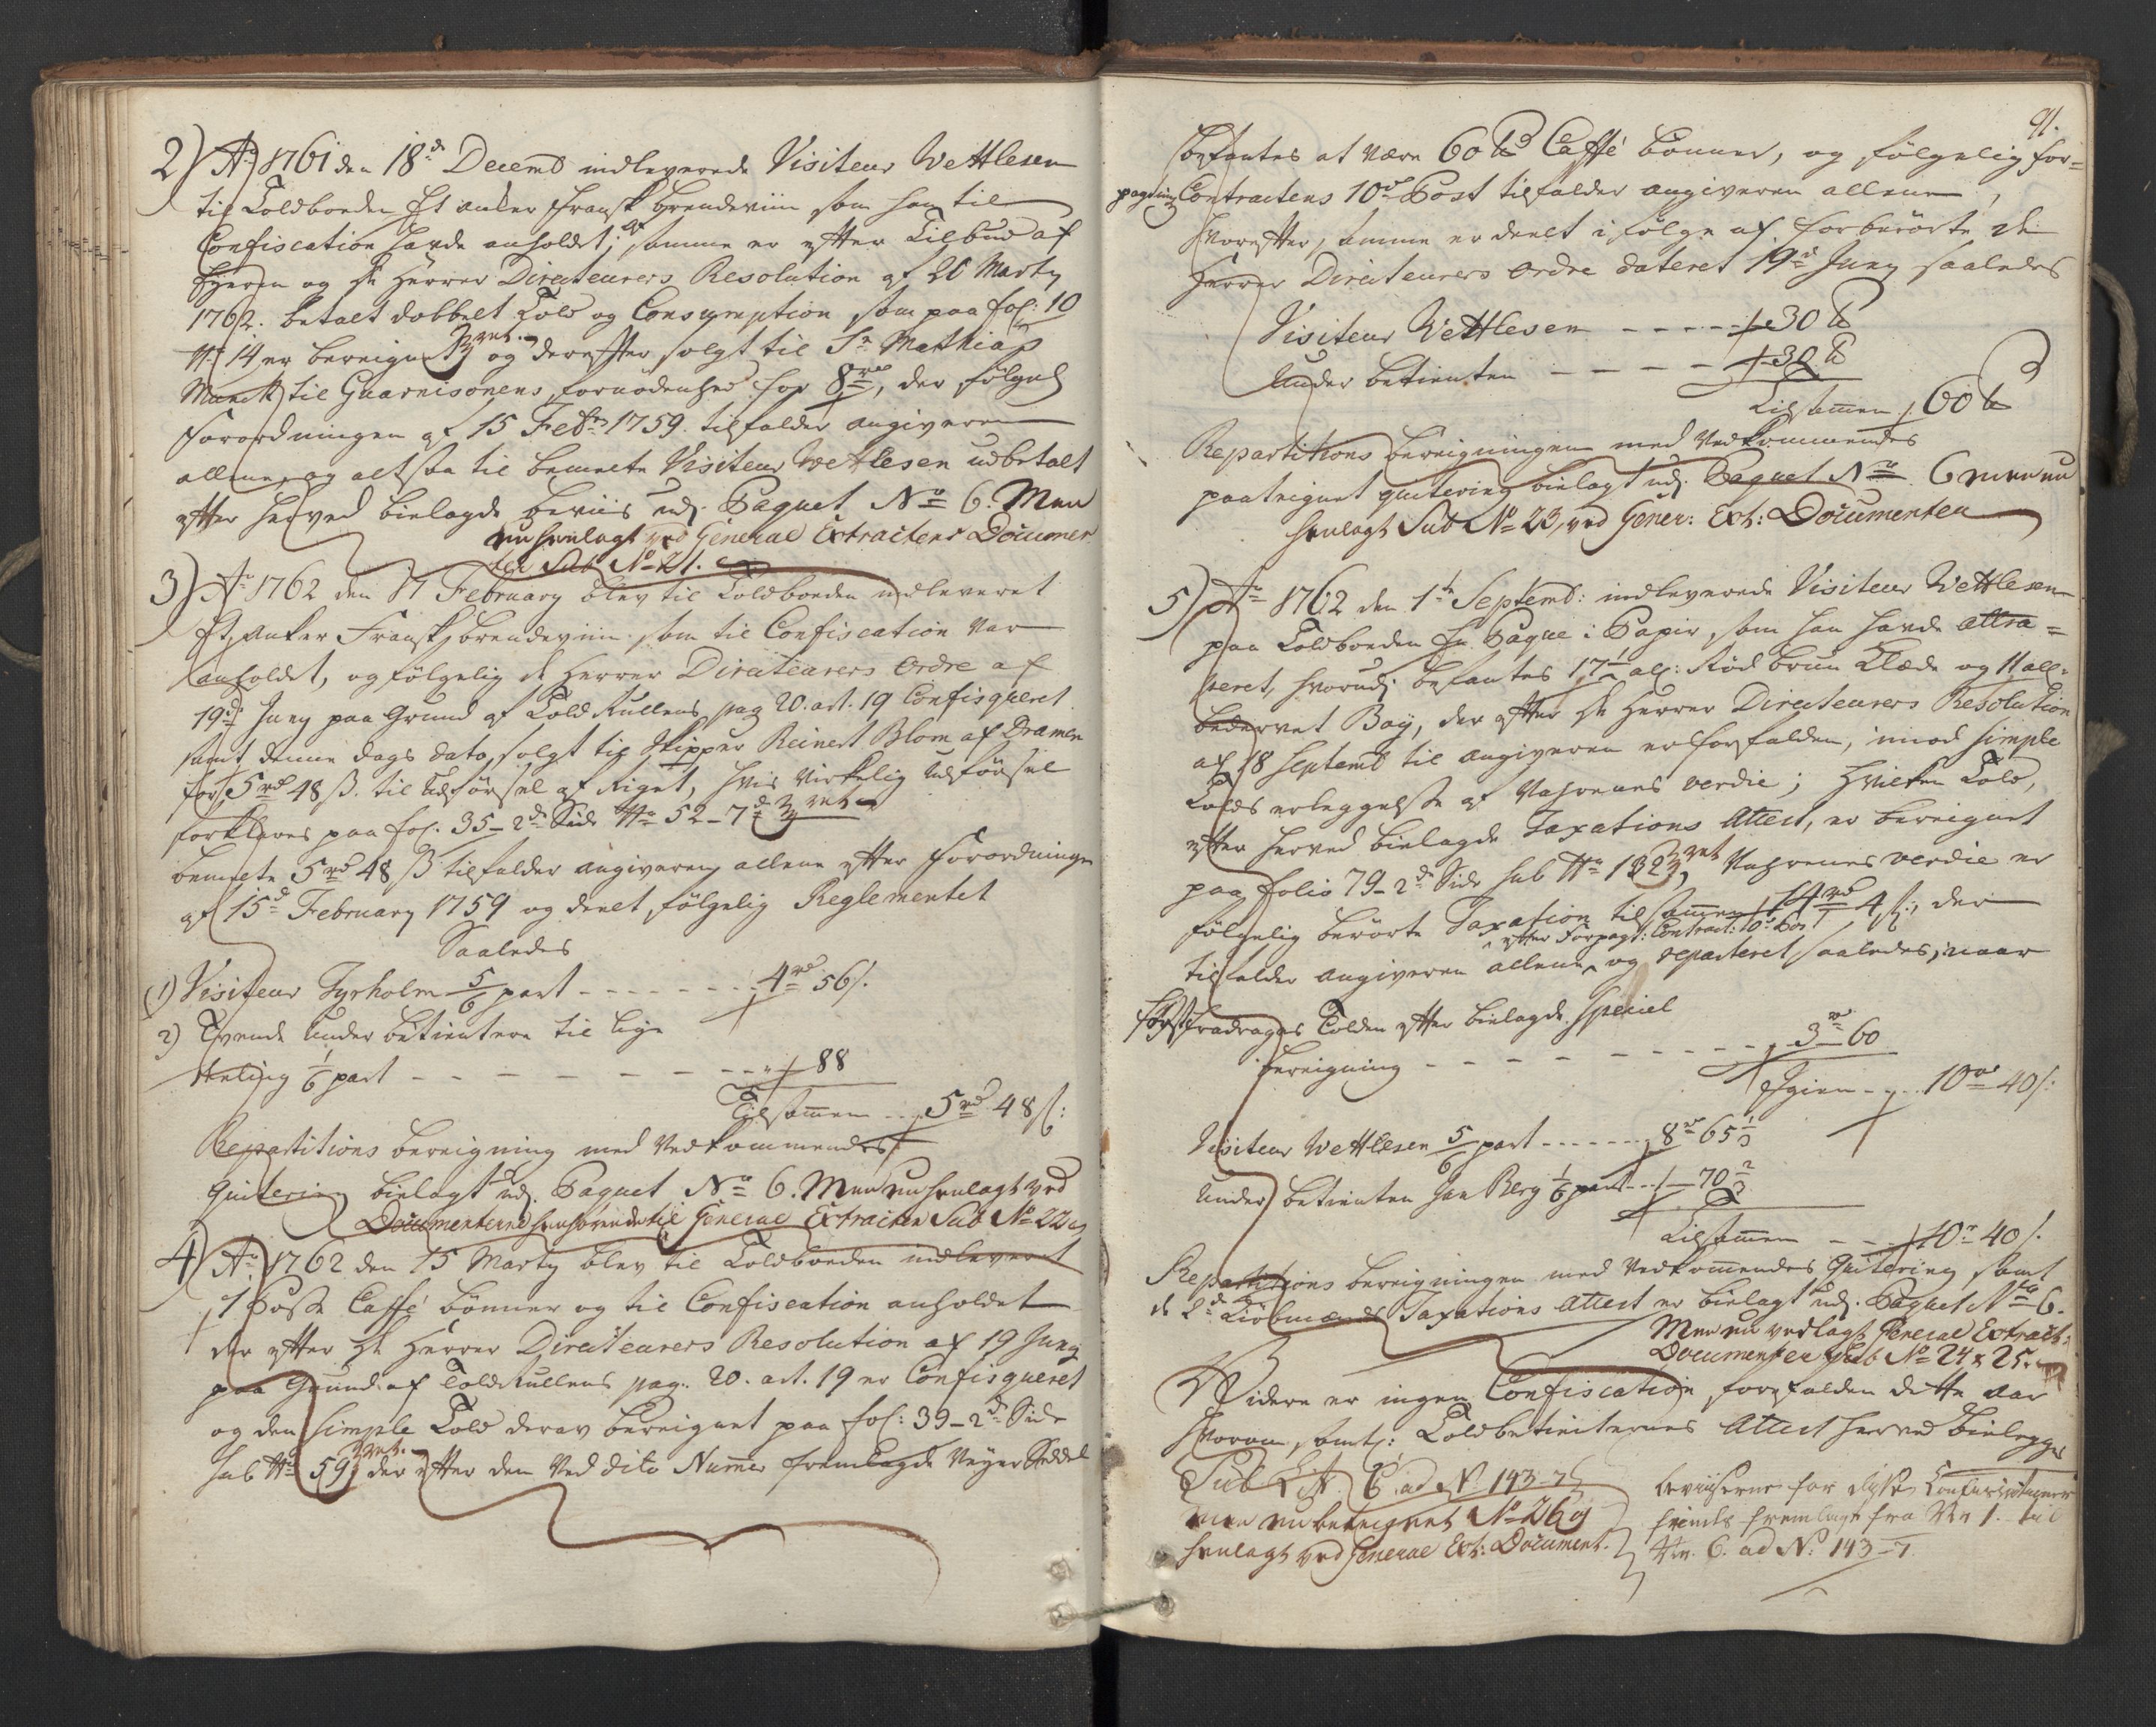 2) Ao 1761 den 18de Decemb indleverede Visiteur Wettlesen
til Toldboeden Et anker Fransk brendeviin som han til
Confiscation havde anholdt; samme er efter Tilbud af
Eyeren og de Herrer Directeurers Resolution af 20 Marty
1762. betalt dobbelt Told og Consumption, som paa fol: 10
No 14 er bereignet og derefter solgt til Sr Mathias
Munck til Guarnisonens fornødenhed for 8rd, der følgel
Forordningen af 15 Febr 1759. tilfalder angiveren
allene, og altsaa til bemelte Visiteur Wettlesen udbetalt
efter hosved bielagde beviis udj Paquet No 6. Men
nu henlagt ved General Extractens Documen
ter Sub No 21.
3) Ao 1762 den 17 February blev til Toldboeden indleveret
Et Anker Fransk brendeviin som til Confiscation var
anholdet, og følgelig de Herrer Directeurers Ordre af
19de Juny paa Grund af Told Rullens pag 20. art. 19 Confisqueret
samt denne dags dato solgt til Skipper Reinert Blom af Dramen
for 5rd 48 ß. til Udførsel af Riget, hvis virkelig Udførsel
forklares paa fol. 35 - 2de Side No 52 - 7de
bemelte 5rd 48 ß tilfalder angiveren allene efter Forordningen
af 15de February 1759 og deelt følgelig Reglementet
Saaledes
1) Visiteur Tyrholm 5/6 part - - - - - - 4rd 56ß.
2) Tvende Under betientere til lige
deeling 1/6 part - - - - - - - - - - " 88
Tilsammen - - 5rd 48ß:
Repartitions bereigning med Vedkommendes
Quitering bielagt udj. Paquet No 6. Men nu henlagt ved
Documenterne henhørende til General Extracten Sub No 22
4) Ao 1762 den 15 Marty blev til Toldboeden indlevert
1 Posse Caffé bønner og til Confiscation anholdet
der efter de Herrer Directeurers Resolution af 19 Juny
paa Grund af Told Rullens pag. 20. art. 19 er Confisqueret
og den simple Told derav bereignet paa fol: 39 - 2de Side
sub No 59, der efter den ved dito Numer fremlagde Veyer Seddel
91.
befantes at være 60 ℔ Caffé bønner, og følgelig for=
pagtnings Contractens 10de Post tilfalder angiveren allene,
hvorefter samme er deelt i følge af forberørte de
Herrer Directeurers Ordre dateret 19de Juny saaledes
Visiteur Wettlesen - - - - - 30 ℔
Under betienten - - - - - 30 ℔
Tilsammen 60 ℔
Repartitions bereigningen med Vedkommendes
paateignet quitering bielagt udj Paquet No 6 men nu
henlagt Sub No 23, ved Gener: Ext: Documenten
5) Ao 1762 den 1te Septemb: indleverede Visiteur Wettlesen
paa Toldboeden En Paque i Papir, som han havde attra=
peret, hvorudj befantes 17 1/2 al: Rød brun Klæde og 11 all:
bedervet Boy, der efter de Herrer Directeurers Resolution
af 18 Septemb til angiveren er forfalden, imod simple
Tolds erleggelse af Vahrenes verdie; Hvilken Told,
efter herved bielagde Taxations Attest, er bereignet
paa folio 79 - 2de Side sub No 132, Vahrenes verdie er
følgelig berørte Taxation tilsammen 14rd 4ß, der
efter Forpagt: Contract: 10de Post
tilfalder angiveren allene, og reparteret saaledes, naar
først fradrages Tolden efter bielagde Speciel
bereigning - - - - - - - - - - - 3rd 60
Igien - - 10rd 40ß:
Visiteur Wettlesen 5/6 part - - - - - - 8rd 65 1/3
Under betienten Jan Berg 1/6 part - - 1 - 70 2/3
Tilsammen - - - 10rd 40ß.
Repartitions bereigningen med Vedkommendes Quitering samt
de 2de Kiøbmænds Taxations Attest er bielagt udj. Paquet No 6.
Men nu vedlagt General Extract:
Documenter Sub No 24 & 25.
Videre er ingen Confiscation forefalden dette aar
hvorom samtl: Toldbetienternes Attest herved bielegges
Sub Litt. C. ad N. 143 - 7
men nu beteignet No 26 og
henlagt ved General Ext: Document.
beviiserne for disse Confiscationer
findes fremlagt fra No 1. til
No. 6. ad N: 143 - 7